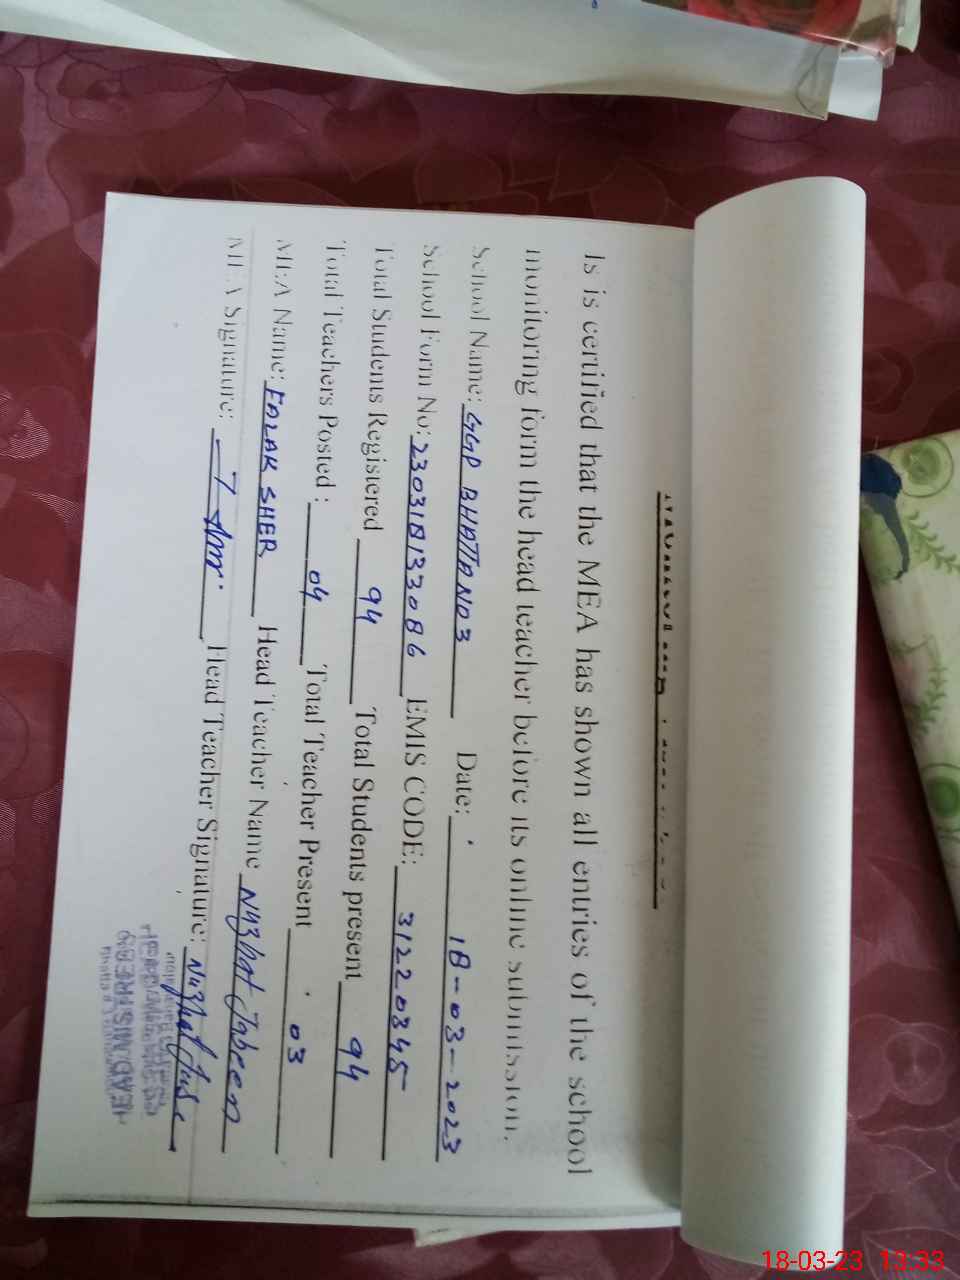 Is is certified that the MEA has shown all entries of the school
monitoring form the head teacher before its online submission.
School Name: GGP BHATTA NO 3 Date: 18-03-2023
School Form No: 230318133086 EMIS CODE: 31220345
Total Students Registered 94 Total Students present 94
Total Teachers Posted: 04 Total Teacher Present 03
MEA Name: FALAK SHER Head Teacher Name Nuzhat Jabeen
MEA Signature: Head Teacher Signature:
HEAD MISTRESS
18-03-23 13:33